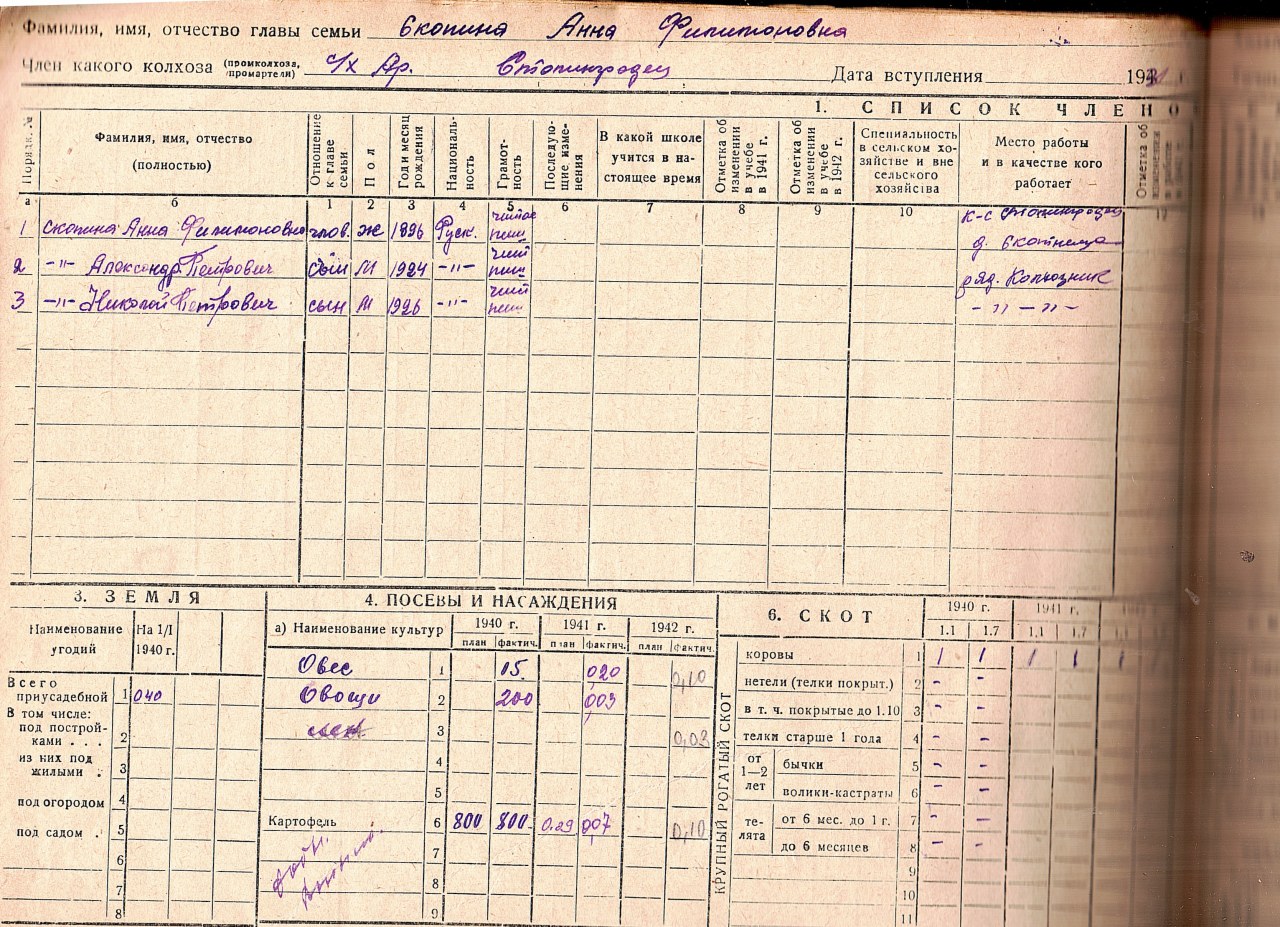 Фамилия, имя, отчество главы семьи Скопина Анна Филимоновна
Член какого колхоза (промколхоза, промартели) с/х Ар. Сталинградец Дата вступления 193
1. СПИСОК ЧЛЕНО
Порядк. №
Фамилия, имя, отчество (полностью)
Отношение к главе семьи
Пол
Год и месяц рождения
Националь-ность
Грамот-ность
Последую-щие изме-нения
В какой школе учится в на-стоящее время
Отметка об изменении в учебе в 1941 г.
Отметка об изменении в учебе в 1942 г.
Специальность в сельском хо-зяйстве и вне сельского хозяйства
Место работы и в качестве кого работает
Отметка об
а б 1 2 3 4 5 6 7 8 9 10 12
1 Скопина Анна Филимоновна глов. ж 1896 Руск. к-с Сталинградец
д. Скотница
2 -"- Александр Петрович сын м 1924 -"- чит пиш ряд. Колхозник
3 -"- Николай Петрович сын м 1926 -"- чит пиш -"-"-
3. ЗЕМЛЯ
Наименование угодий На 1/I 1940 г.
Всего приусадебной 1 040
В том числе:
под построй-ками . . . 2
из них под жилыми . 3
под огородом 4
под садом . 5
6
7
8
4. ПОСЕВЫ И НАСАЖДЕНИЯ
а) Наименование культур 1940 г. 1941 г. 1942 г.
план фактич. план фактич. план фактич.
Овес 1 15. 020 0,10
Овощи 2 200 003
3 0,03
4
5
Картофель 6 800 800 0.29 007 0,10
7
8
9
6. СКОТ
1940 г. 1941 г.
1.1 1.7 1.1 1.7
КРУПНЫЙ РОГАТЫЙ СКОТ
коровы 1 1 1 1 1 1
нетели (телки покрыт.) 2 - -
в т. ч. покрытые до 1.10 3 - -
телки старше 1 года 4 - -
от 1—2 лет бычки 5 - -
волики-кастраты 6 - -
те-лята от 6 мес. до 1 г. 7 - -
до 6 месяцев 8 - -
9
10
11